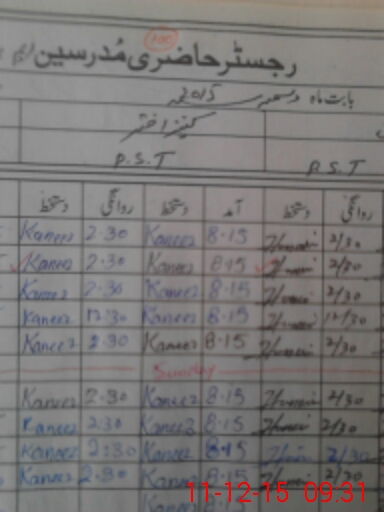 100
رجسٹر حاضری مُدرسین
بابت ماہ دسمبر 2015ء
کنیز اختر
P.S.T P.S.T
روانگی دستخط آمد دستخط روانگی دستخط
Kaneez 2.30 Kaneez 8.15 2/30
Kaneez 2.30 Kaneez 8.15 2/30
Kaneez 2.30 Kaneez 8.15 2/30
Kaneez 12.30 Kaneez 8.15 12/30
Kaneez 2.30 Kaneez 8.15 2/30
Sunday
Kaneez 2.30 Kaneez 8.15 2/30
Kaneez 2.30 Kaneez 8.15 2/30
Kaneez 2:30 Kaneez 8.15 2/30
Kaneez 2.30 Kaneez 8.15 2/30
Kaneez 8.15
11-12-15 09.31